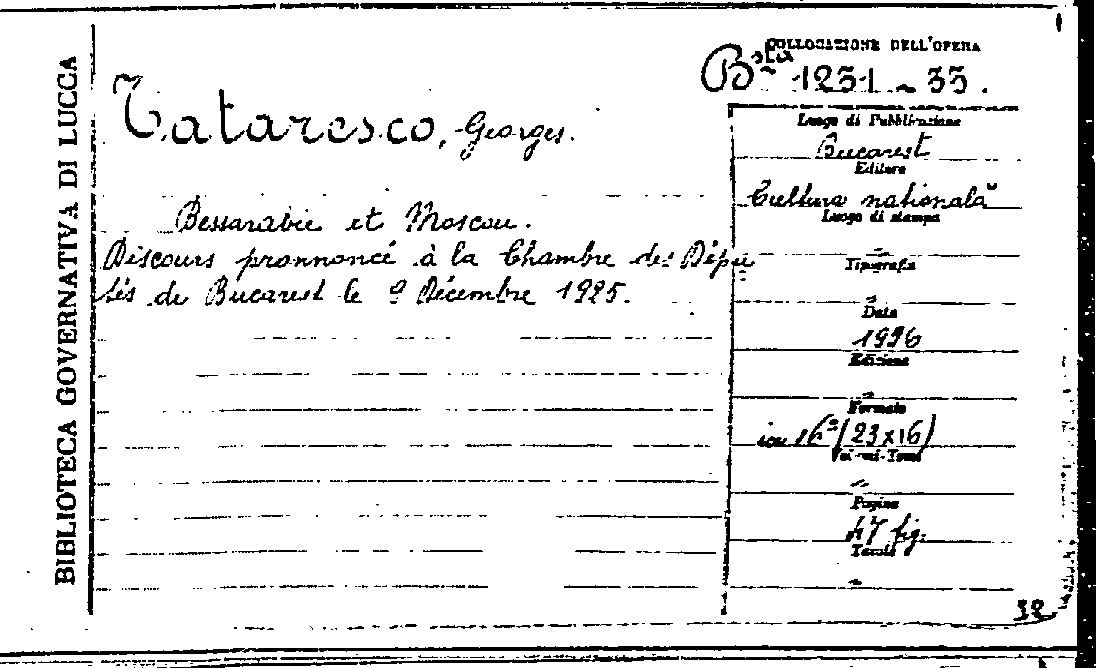 BIBLIOTECA GOVERNATIVA DI LUCCA
COLLOCAZIONE DELL'OPERA
Bsta 1231 - 33.
Tataresco, Georges.
Bessarabie et Moscou.
Discours prannoncé à la Chambre des Dépu
tés de Bucarest le 9 Décembre 1925.
Luogo di Pubblicazione
Bucarest
Editore
Cultura natională
Luogo di stampa
"
Tipografia
"
Data
1926
Edizione
"
Formato
in 16º (23x16)
Volumi-Tomi
"
Pagine
47 fig.
Tavole
"
32